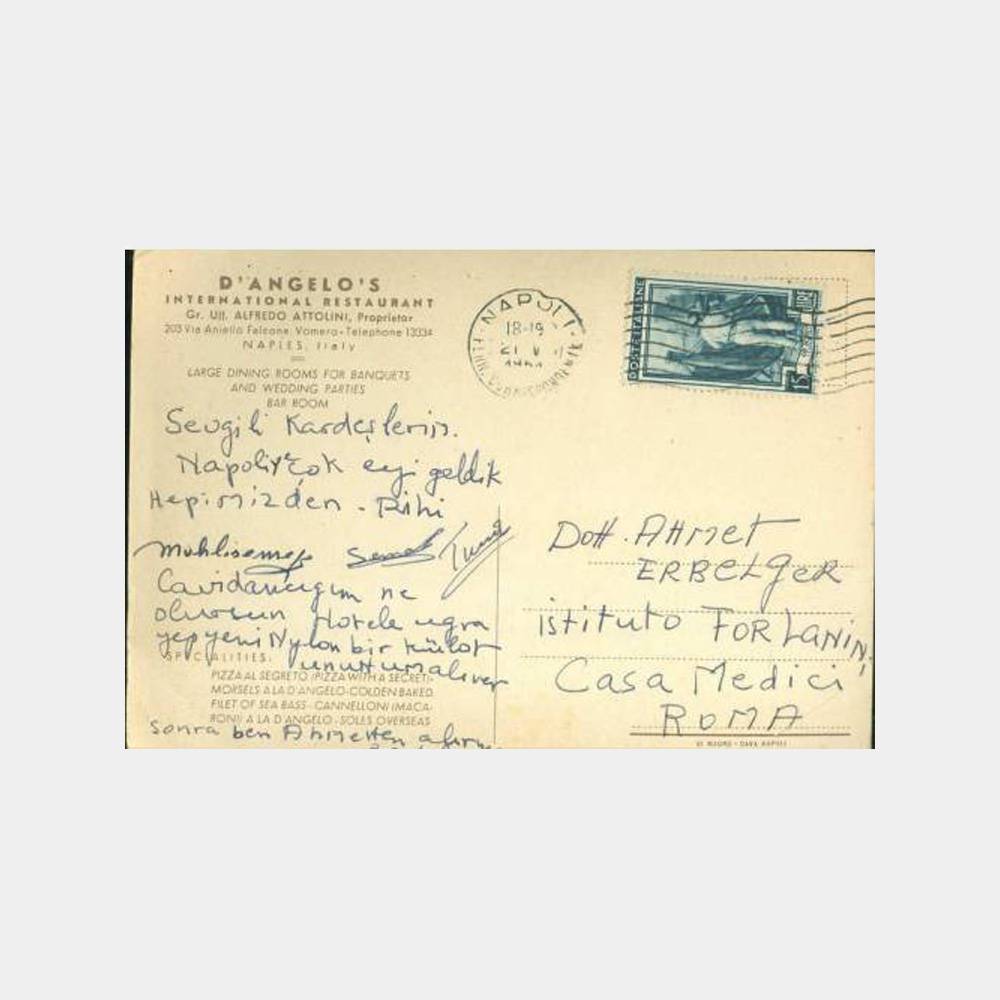 D'ANGELO'S
INTERNATIONAL RESTAURANT
Gr. Uff. ALFREDO ATTOLINI, Proprietor
203 Via Aniello Falcone Vomero - Telephone 13334
NAPLES, Italy
LARGE DINING ROOMS FOR BANQUETS
AND WEDDING PARTIES
BAR ROOM
Sevgili Kardeşlerim.
Napoliye çok eyi geldik
Hepimizden -
Cavidancığım ne
olursun Hotele uğra
yepyeni Nylon bir külot
unuttum alıver
SPECIALITIES:
PIZZA AL SEGRETO (PIZZA WITH A SECRET)-
MORSELS A LA D'ANGELO-GOLDEN BAKED
FILET OF SEA BASS - CANNELLONI (MACA-
RONI) A LA D'ANGELO - SOLES OVERSEAS
sonra ben Ahmetten alırım
NAPOLI
18-19
POSTE ITALIANE
LIRE
15
Dott. AHMET
ERBELGER
istituto FORLANINI
Casa Medici
ROMA